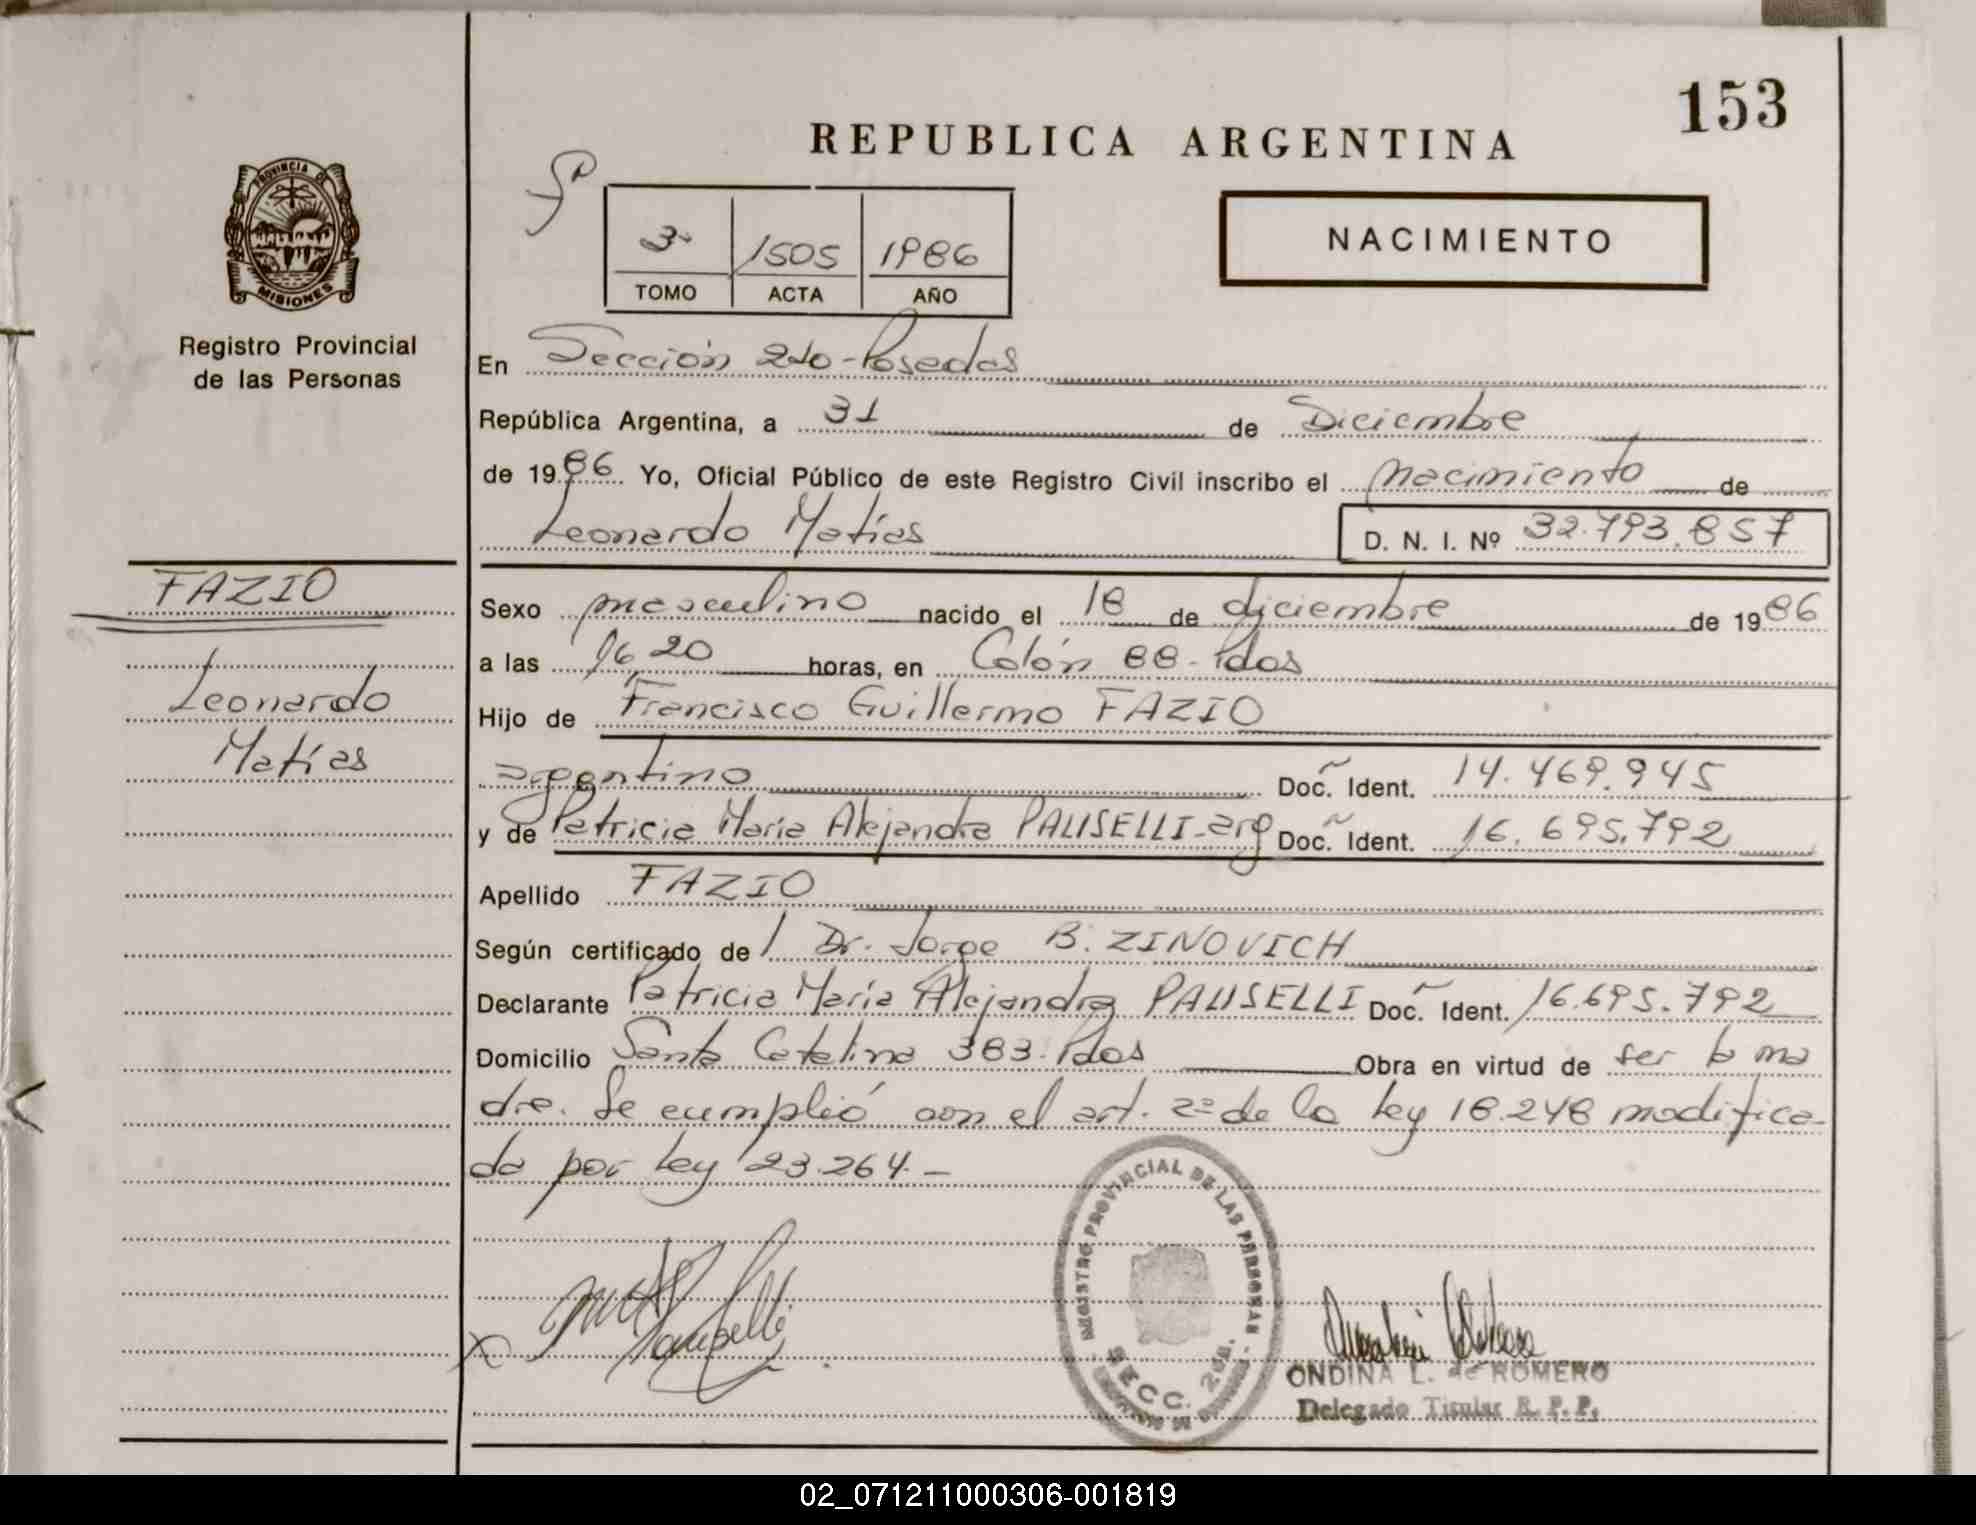 153
REPUBLICA ARGENTINA
PROVINCIA DE
MISIONES
Registro Provincial
de las Personas
3º 1505 1986
TOMO ACTA AÑO
NACIMIENTO
En Sección 2da-Posadas
República Argentina, a 31 de Diciembre
de 1986 Yo, Oficial Público de este Registro Civil inscribo el nacimiento de
Leonardo Matías D. N. I. Nº 32.793.857
FAZIO
Leonardo
Matías
Sexo masculino nacido el 18 de diciembre de 1986
a las 16,20 horas, en Colón 88-Pdas
Hijo de Francisco Guillermo FAZIO
argentino Doc. Ident. 14.469.945
y de Patricia María Alejandra PAUSELLI-arg Doc. Ident. 16.695.792
Apellido FAZIO
Según certificado de Dr. Jorge B. ZINOVICH
Declarante Patricia María Alejandra PAUSELLI Doc. Ident. 16.695.792
Domicilio Santa Catalina 383-Pdas Obra en virtud de ser la ma
dre. Se cumplió con el art. 2º de la ley 18.248 modifica-
da por ley 23.264.-
REGISTRO PROVINCIAL DE LAS PERSONAS
SECC. 2da.
ONDINA L. de ROMERO
Delegado Titular R. P. P.
02_071211000306-001819